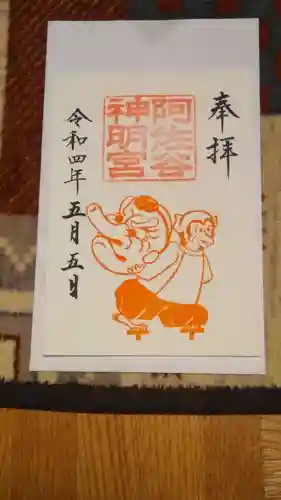 奉拝
阿佐谷
神明宮
令和四年五月五日